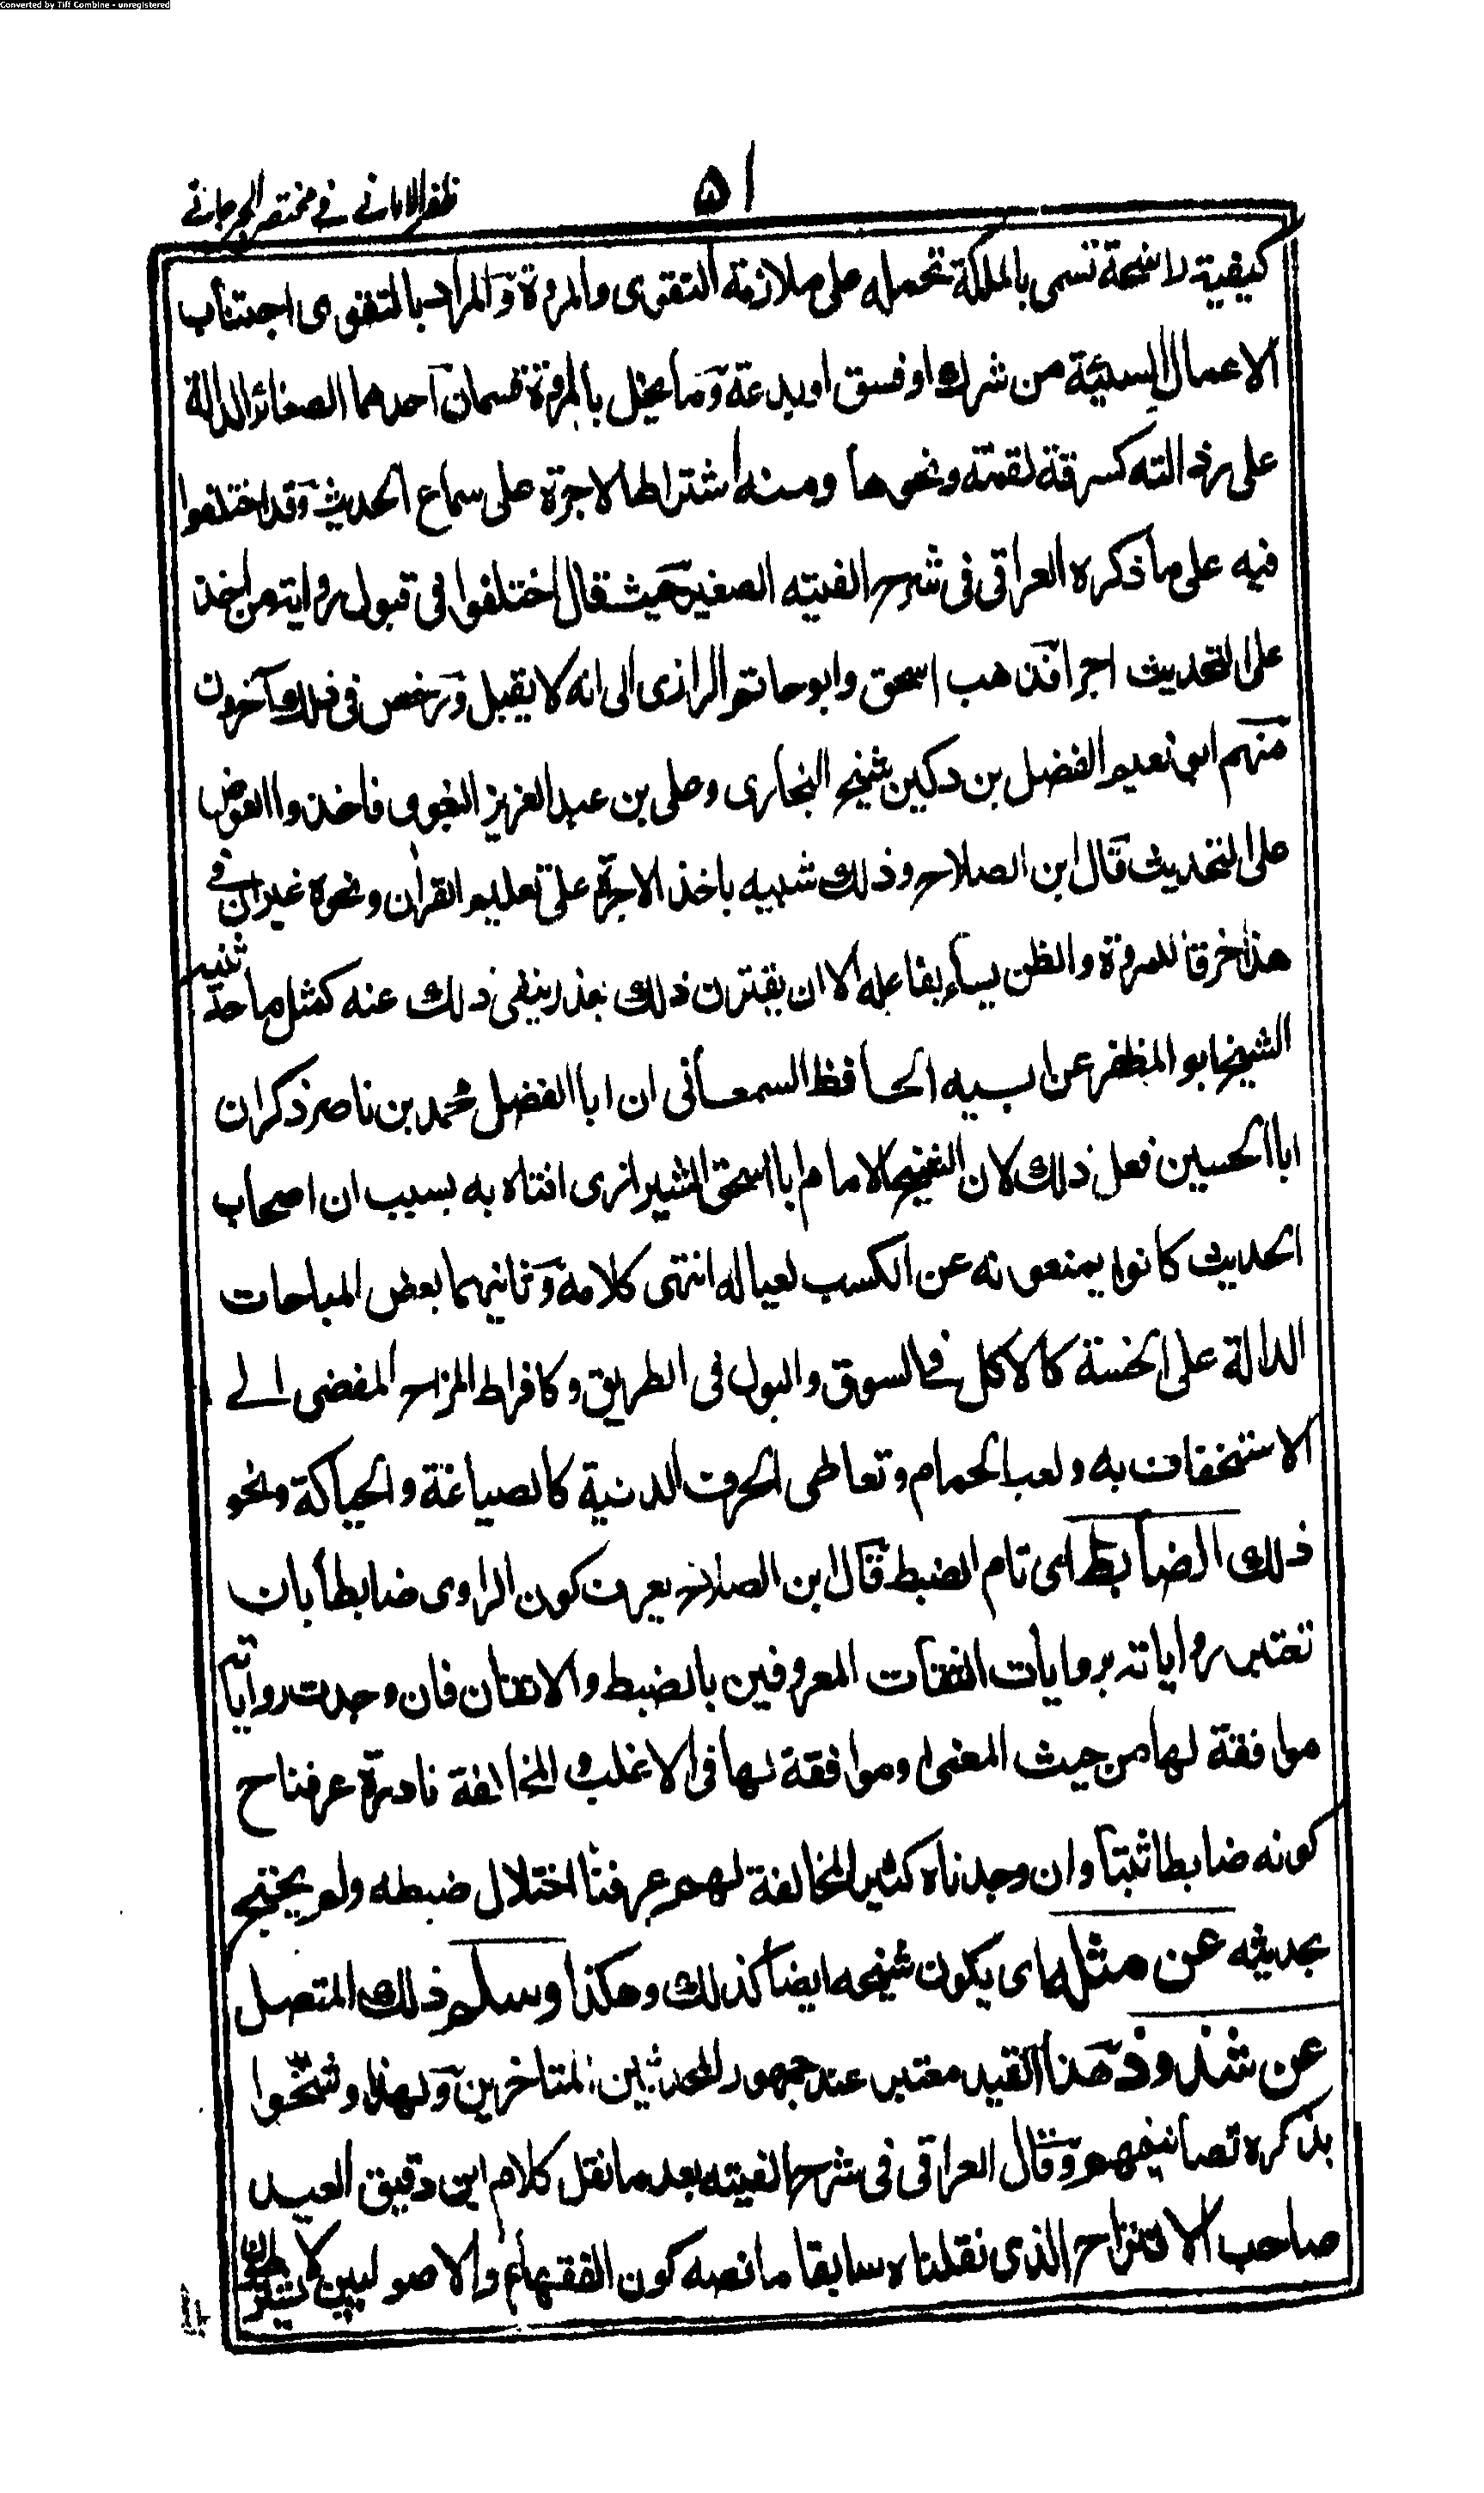 Converted by Tiff Combine - unregistered
ظفر الامانی فی مختصر الجرجانی
۵۱
كيفية راسخة تسمى بالملكة تحمله على ملازمة التقوى والمروة والمراد بالتقوى اجتناب
الاعمال السيئة من شرك او فسق او بدعة وما يخل بالمروة قسمان احدهما الصغائر الدالة
على رذالته كسرقة لقمة ونحوها ومنه اشتراط الاجرة على سماع الحديث وقد اختلفوا
فيه على ما ذكره العراقى فى شرح الفيته الصغير حيث قال اختلفوا فى قبول رواية من اخذ
على التحديث اجرا فذهب اسحق وابو حاتم الرازى الى انه لا يقبل ورخص فى ذلك آخرون
منهم ابو نعيم الفضل بن دكين شيخ البخارى وعلى بن عبد العزيز البغوى فاخذوا العوض
على التحديث قال ابن الصلاح وذلك شبيه باخذ الاجرة على تعليم القرآن ونحوه غير ان فى
هذا خرقا للمروة والظن يساء بفاعله الا ان يقترن ذلك بعذر ينفى ذلك عنه كمثل ما حدثنيه
الشيخ ابو المظفر عن ابيه الحافظ السمعانى ان ابا الفضل محمد بن ناصر ذكر ان
ابا الحسين فعل ذلك لان الشيخ الامام ابا اسحق الشيرازى افتاه به بسبب ان اصحاب
الحديث كانوا يمنعونه عن الكسب لعياله انتهى كلامه وثانيهما بعض المباحات
الدالة على الخسة كالاكل فى السوق والبول فى الطريق وكافراط المزاح المفضى الى
الاستخفاف به ولعب الحمام وتعاطى الحرف الدنية كالصياغة والحياكة ونحو
ذلك الضابط اى تام الضبط قال ابن الصلاح يعرف كون الراوى ضابطا بان
تعتبر رواياته بروايات الثقات المعروفين بالضبط والاتقان فان وجدت رواياته
موافقة لها من حيث المعنى او موافقة لها فى الاغلب والمخالفة نادرة عرفنا ح
كونه ضابطا ثبتا وان وجدناه كثير المخالفة لهم عرفنا اختلال ضبطه ولم يحتج
بحديثه عن مثله اى يكون شيخه ايضا كذلك وهكذا وسلم ذلك المتصل
عن شذوذ هذا القيد معتبر عند جمهور المحدثين المتاخرين ولهذا وشحوا
بذكره تصانيفهم وقال العراقى فى شرح الفيته بعد ما نقل كلام ابن دقيق العيد
صاحب الاقتراح الذى نقلناه سابقا ما نصه كون الفقهاء والاصوليين لا يشترطون